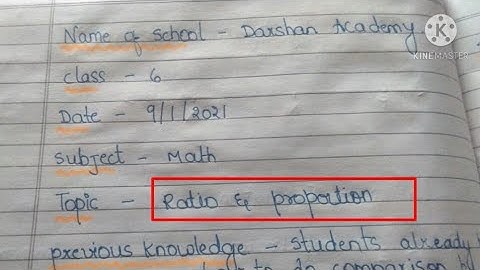 Name of School - Darshan Academy
KINEMASTER
Class - 6
Date - 9/1/2021
Subject - Math
Topic - Ratio & proportion
previous Knowledge - students already
to do comparison by